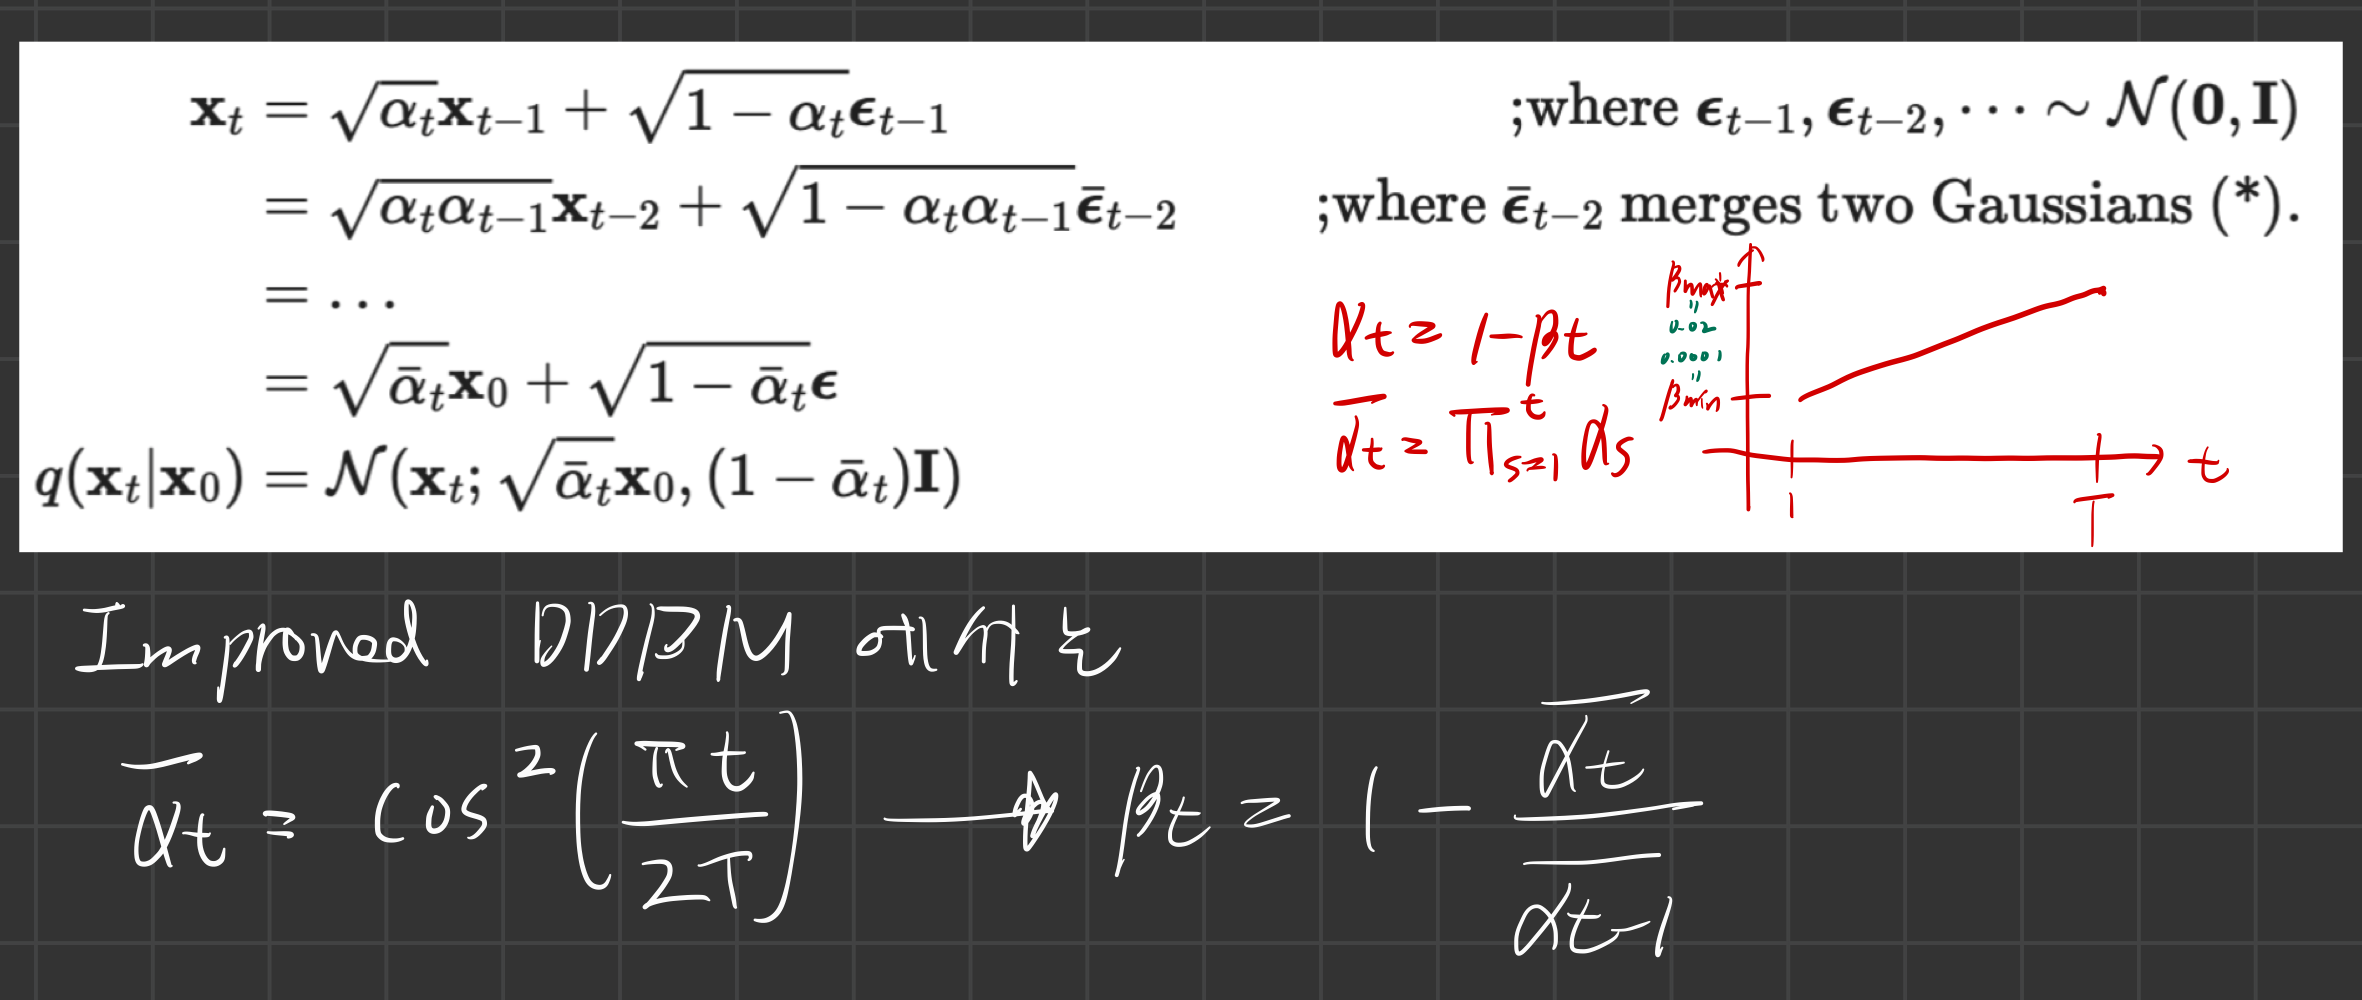 x_t = √α_t x_{t−1} + √(1 − α_t) ε_{t−1} ;where ε_{t−1}, ε_{t−2}, ⋯ ∼ 𝒩(0, I)
= √(α_t α_{t−1}) x_{t−2} + √(1 − α_t α_{t−1}) ε̄_{t−2} ;where ε̄_{t−2} merges two Gaussians (*).
= …
= √ᾱ_t x_0 + √(1 − ᾱ_t) ε
q(x_t|x_0) = 𝒩(x_t; √ᾱ_t x_0, (1 − ᾱ_t)I)
α_t = 1 − β_t
ᾱ_t = Π_{s=1}^t α_s
β_max
=
0.02
0.0001
=
β_min
1
T
t
Improved DDPM 에서는
ᾱ_t = cos²(πt / 2T) → β_t = 1 − ᾱ_t / ᾱ_{t−1}